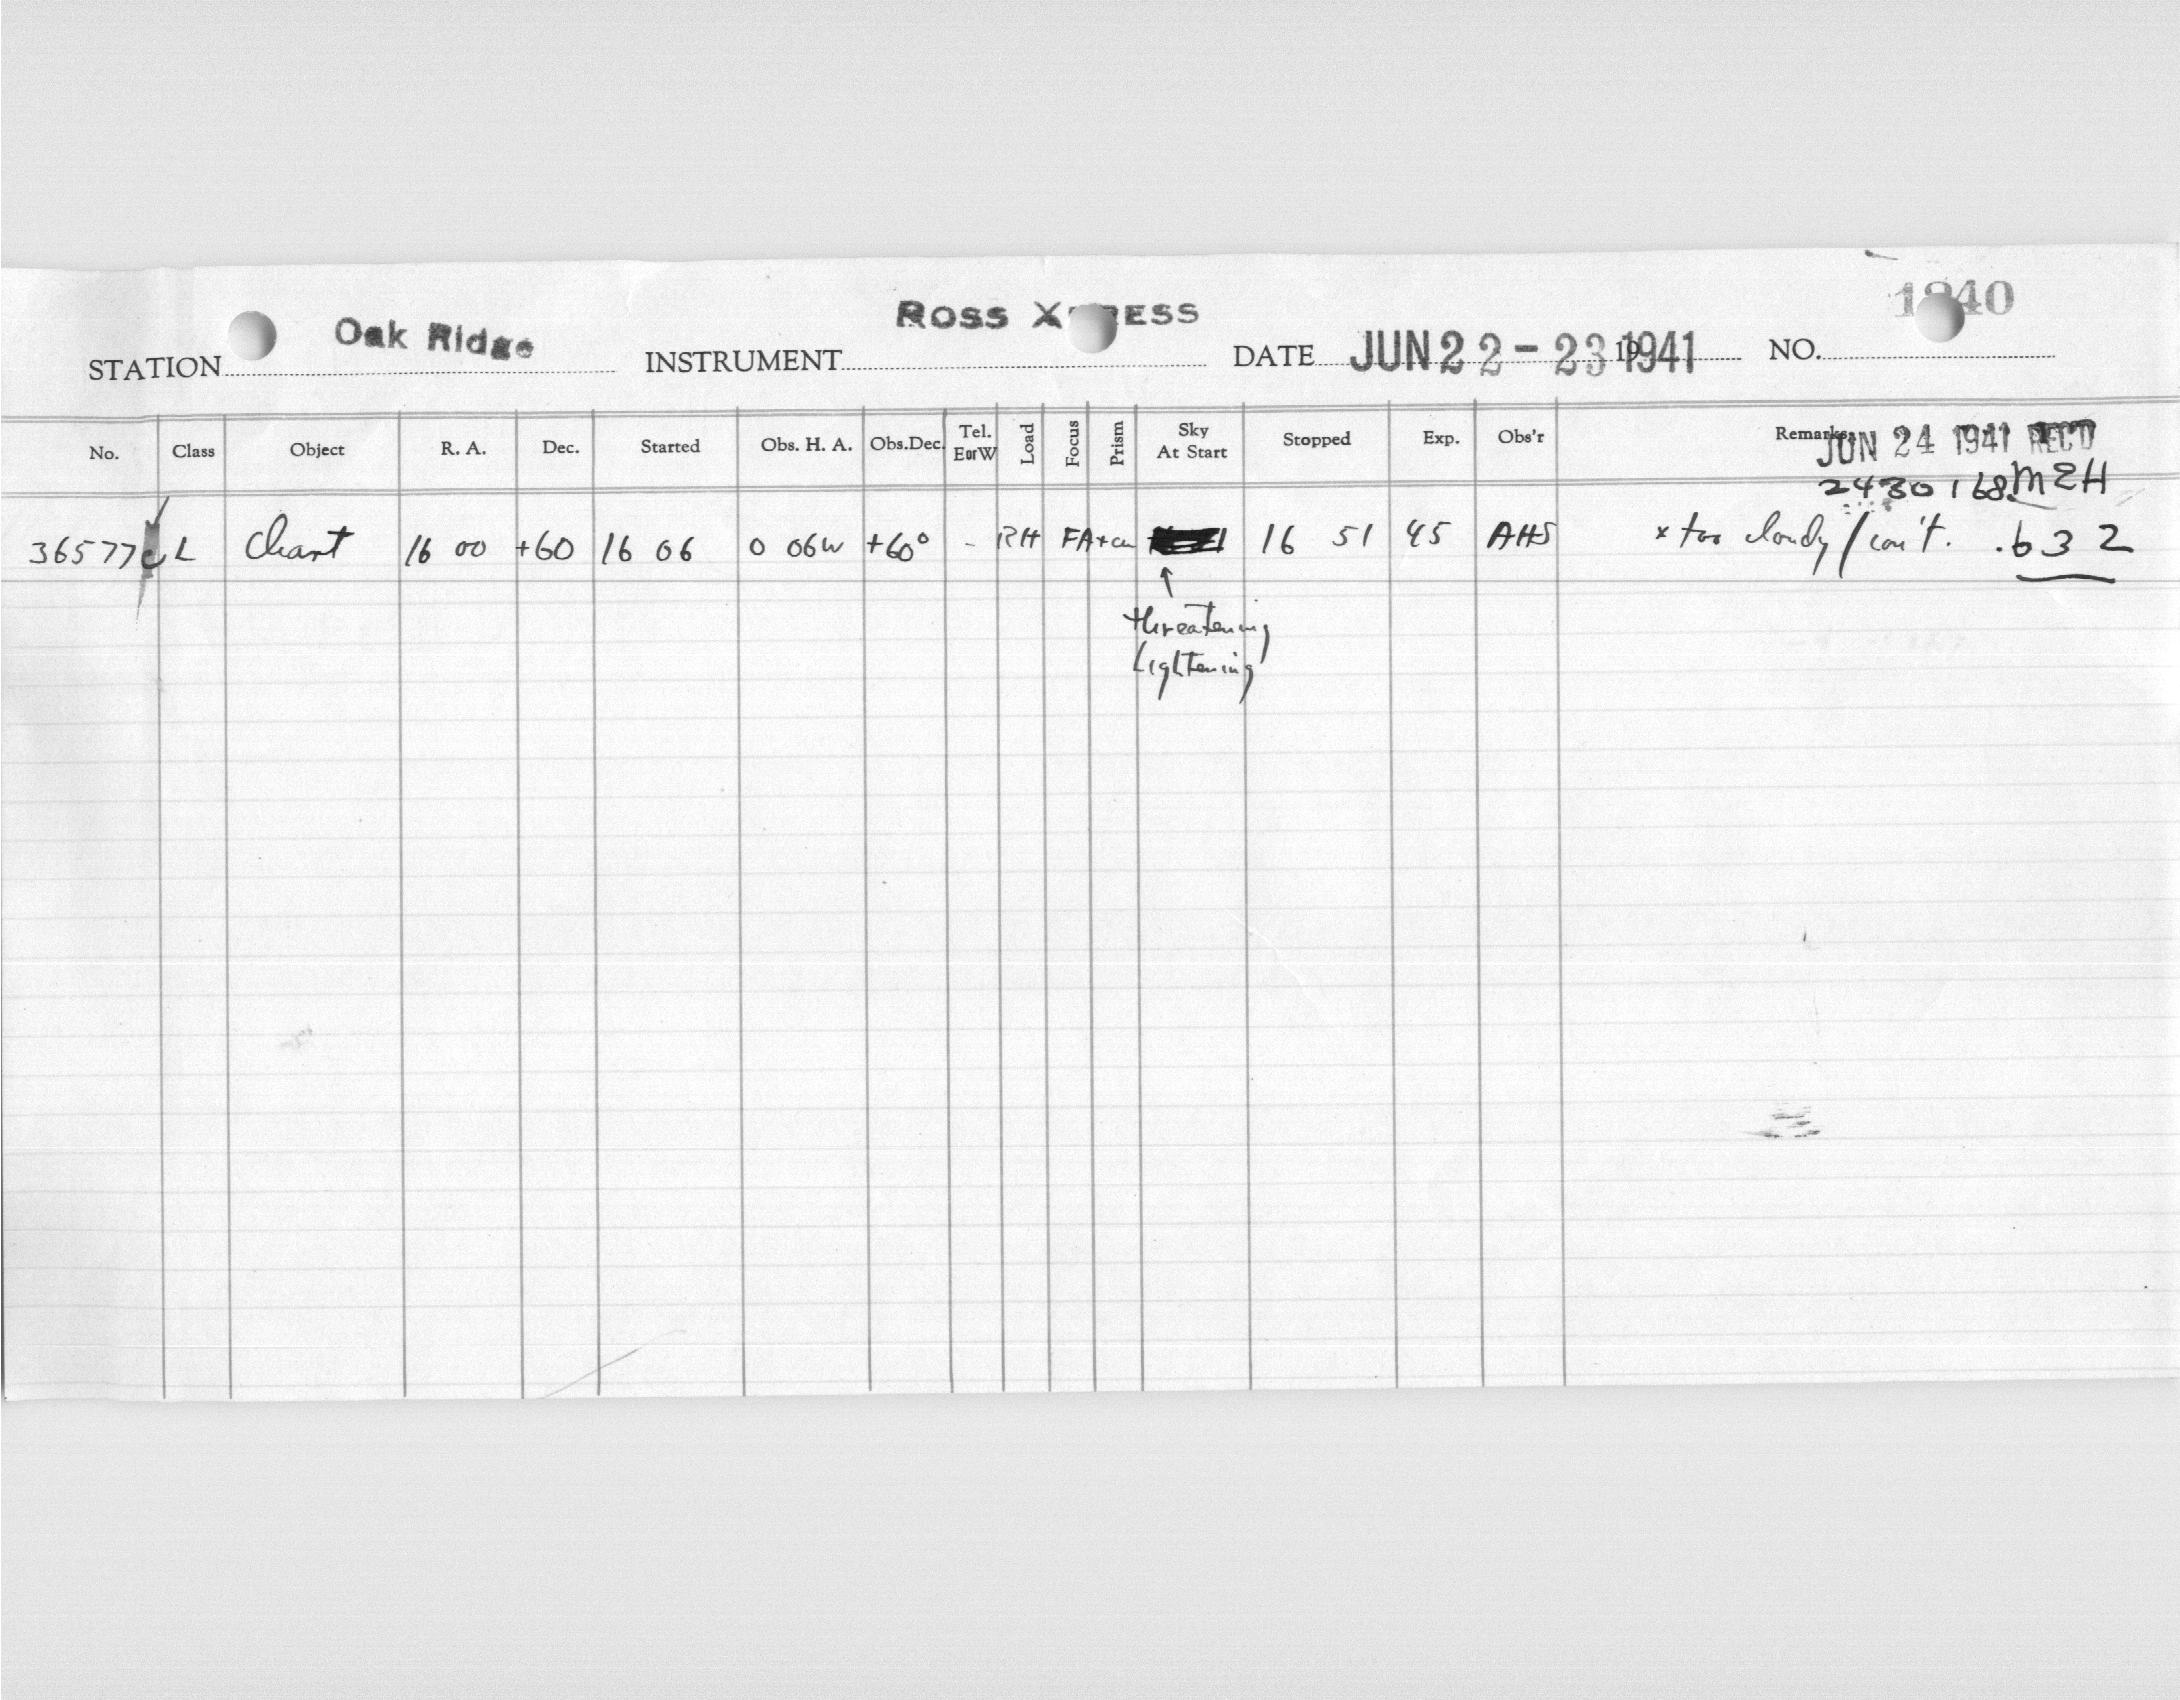 STATION Oak Ridge INSTRUMENT ROSS X ESS DATE JUN 22-23 19 1941 NO. 1 40
No. Class Object R. A. Dec. Started Obs. H. A. Obs.Dec. Tel. E or W Load Focus Prism Sky At Start Stopped Exp. Obs'r Remarks
JUN 24 1941 REC'D
2430168. MZH
36577 L Chart 16 00 +60 16 06 0 06W +60° - RH FA 16 51 45 AHS x too cloudy / con't. .632
↑
threatening
Lightening